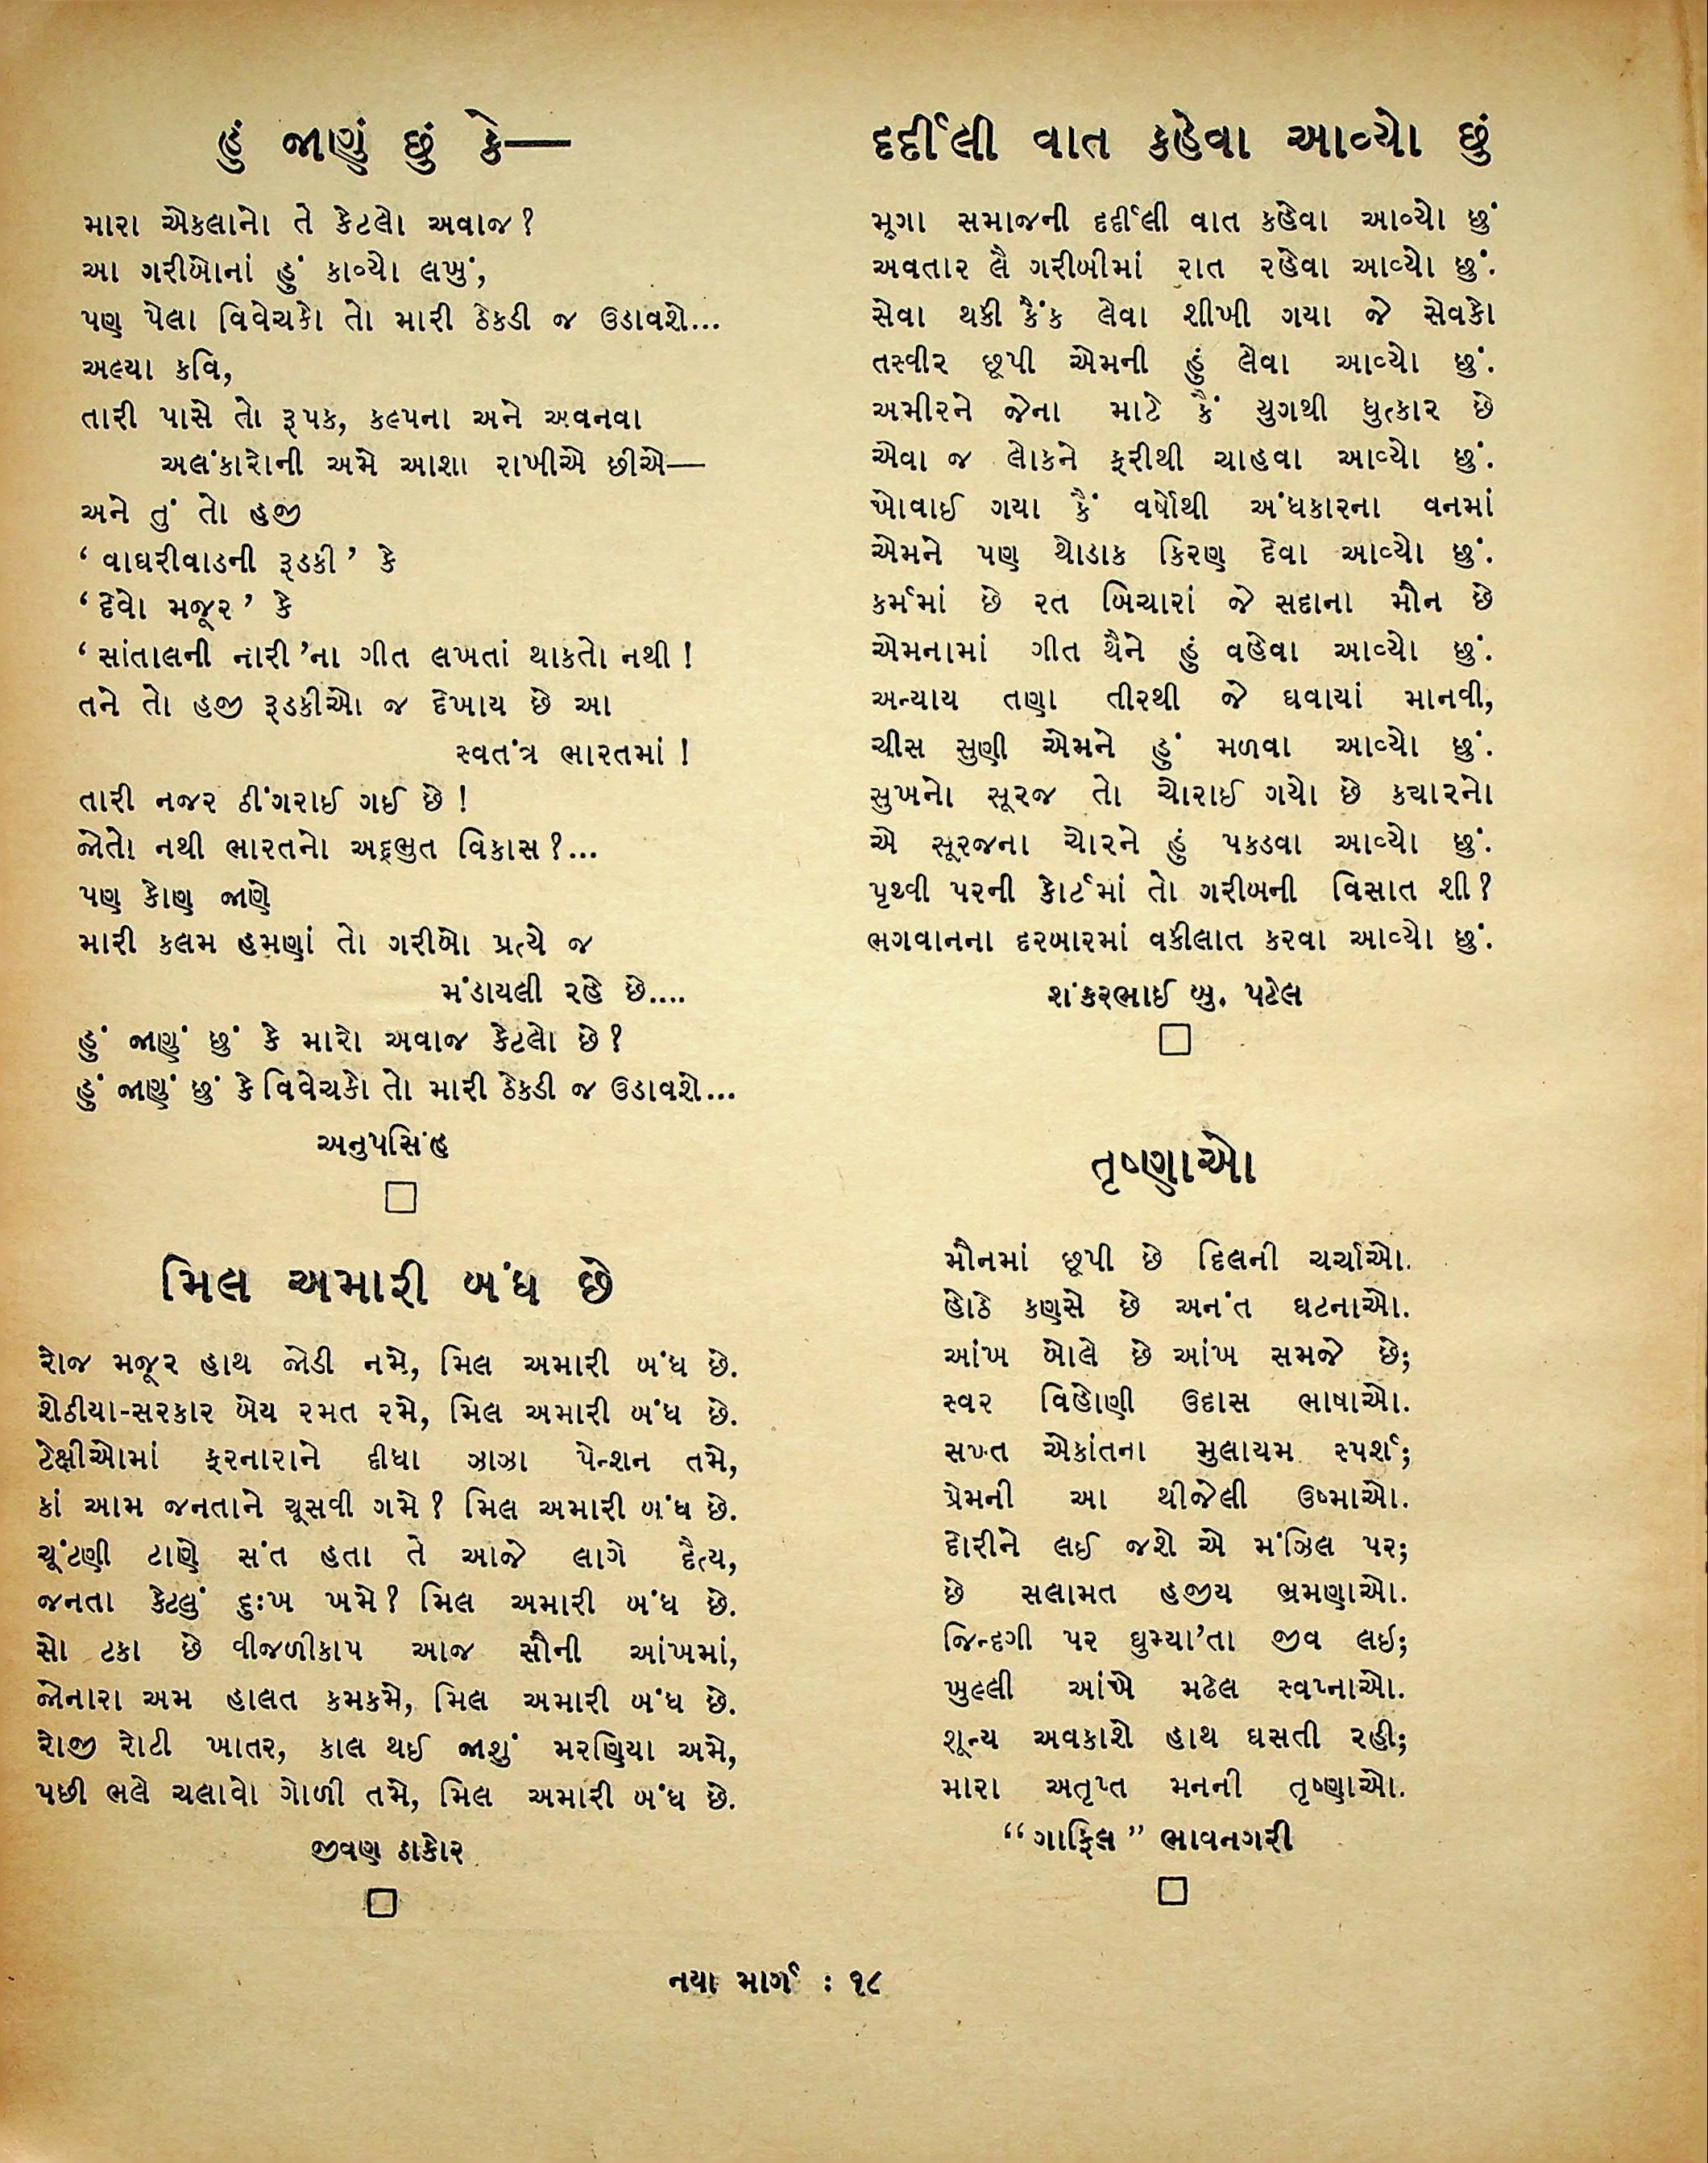 હું જાણું છું કે—
મારા એકલાનો તે કેટલો અવાજ?
આ ગરીબોનાં હું કાવ્યો લખું,
પણ પેલા વિવેચકો તો મારી ઠેકડી જ ઉડાવશે...
અલ્યા કવિ,
તારી પાસે તો રૂપક, કલ્પના અને અવનવા
અલંકારોની અમે આશા રાખીએ છીએ—
અને તું તો હજી
‘ વાઘરીવાડની રૂડકી ’ કે
‘ દેવો મજૂર ’ કે
‘ સાંતાલની નારી ’ના ગીત લખતાં થાકતો નથી !
તને તો હજી રૂડકીઓ જ દેખાય છે આ
સ્વતંત્ર ભારતમાં !
તારી નજર ઠીંગરાઈ ગઈ છે !
જોતો નથી ભારતનો અદ્ભુત વિકાસ?...
પણ કોણ જાણે
મારી કલમ હમણાં તો ગરીબો પ્રત્યે જ
મંડાયલી રહે છે....
હું જાણું છું કે મારો અવાજ કેટલો છે?
હું જાણું છું કે વિવેચકો તો મારી ઠેકડી જ ઉડાવશે...
અનુપસિંહ
મિલ અમારી બંધ છે
રોજ મજૂર હાથ જોડી નમે, મિલ અમારી બંધ છે.
શેઠીયા-સરકાર બેય રમત રમે, મિલ અમારી બંધ છે.
ટેક્ષીઓમાં ફરનારાને દીધા ઝાઝા પેન્શન તમે,
કાં આમ જનતાને ચૂસવી ગમે? મિલ અમારી બંધ છે.
ચૂંટણી ટાણે સંત હતા તે આજે લાગે દૈત્ય,
જનતા કેટલું દુઃખ ખમે? મિલ અમારી બંધ છે.
સો ટકા છે વીજળીકાપ આજ સૌની આંખમાં,
જોનારા અમ હાલત કમકમે, મિલ અમારી બંધ છે.
રોજી રોટી ખાતર, કાલ થઈ જાશું મરણિયા અમે,
પછી ભલે ચલાવો ગોળી તમે, મિલ અમારી બંધ છે.
જીવણ ઠાકોર
દર્દીલી વાત કહેવા આવ્યો છું
મૂગા સમાજની દર્દીલી વાત કહેવા આવ્યો છું
અવતાર લૈ ગરીબીમાં રાત રહેવા આવ્યો છું.
સેવા થકી કૈંક લેવા શીખી ગયા જે સેવકો
તસ્વીર છૂપી એમની હું લેવા આવ્યો છું.
અમીરને જેના માટે કૈં યુગથી ધુત્કાર છે
એવા જ લોકને ફરીથી ચાહવા આવ્યો છું.
ખોવાઈ ગયા કૈં વર્ષોથી અંધકારના વનમાં
એમને પણ થોડાક કિરણ દેવા આવ્યો છું.
કર્મમાં છે રત બિચારાં જે સદાના મૌન છે
એમનામાં ગીત થૈને હું વહેવા આવ્યો છું.
અન્યાય તણા તીરથી જે ઘવાયાં માનવી,
ચીસ સુણી એમને હું મળવા આવ્યો છું.
સુખનો સૂરજ તો ચોરાઈ ગયો છે ક્યારનો
એ સૂરજના ચોરને હું પકડવા આવ્યો છું.
પૃથ્વી પરની કોર્ટમાં તો ગરીબની વિસાત શી?
ભગવાનના દરબારમાં વકીલાત કરવા આવ્યો છું.
શંકરભાઈ બુ. પટેલ
તૃષ્ણાઓ
મૌનમાં છૂપી છે દિલની ચર્ચાઓ.
હોઠે કણસે છે અનંત ઘટનાઓ.
આંખ બોલે છે આંખ સમજે છે;
સ્વર વિહોણી ઉદાસ ભાષાઓ.
સખ્ત એકાંતના મુલાયમ સ્પર્શ;
પ્રેમની આ થીજેલી ઉષ્માઓ.
દોરીને લઈ જશે એ મંઝિલ પર;
છે સલામત હજીય ભ્રમણાઓ.
જિન્દગી પર ઘુમ્યા’તા જીવ લઇ;
ખુલ્લી આંખે મઢેલ સ્વપ્નાઓ.
શૂન્ય અવકાશે હાથ ઘસતી રહી;
મારા અતૃપ્ત મનની તૃષ્ણાઓ.
“ ગાફિલ ” ભાવનગરી
નયા માર્ગ : ૧૮